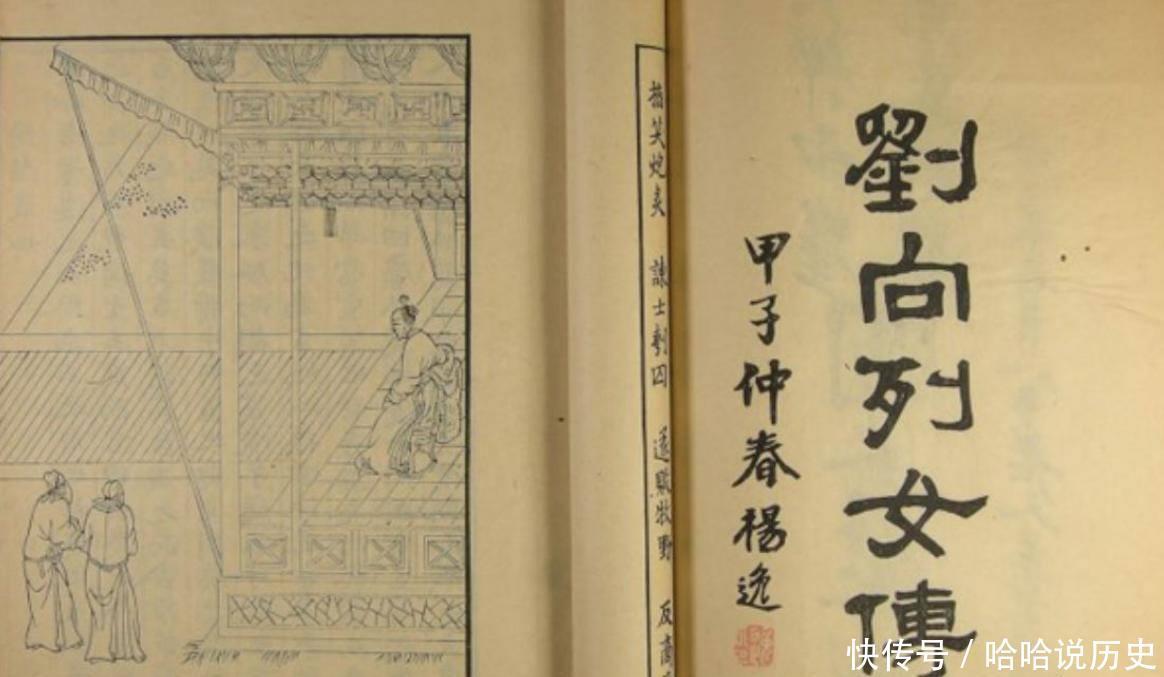 劉向列女傳
甲子仲春楊逸
指笑炮炙 諫士刳囚 遂敗牧野 反商
快传号 / 哈哈说历史